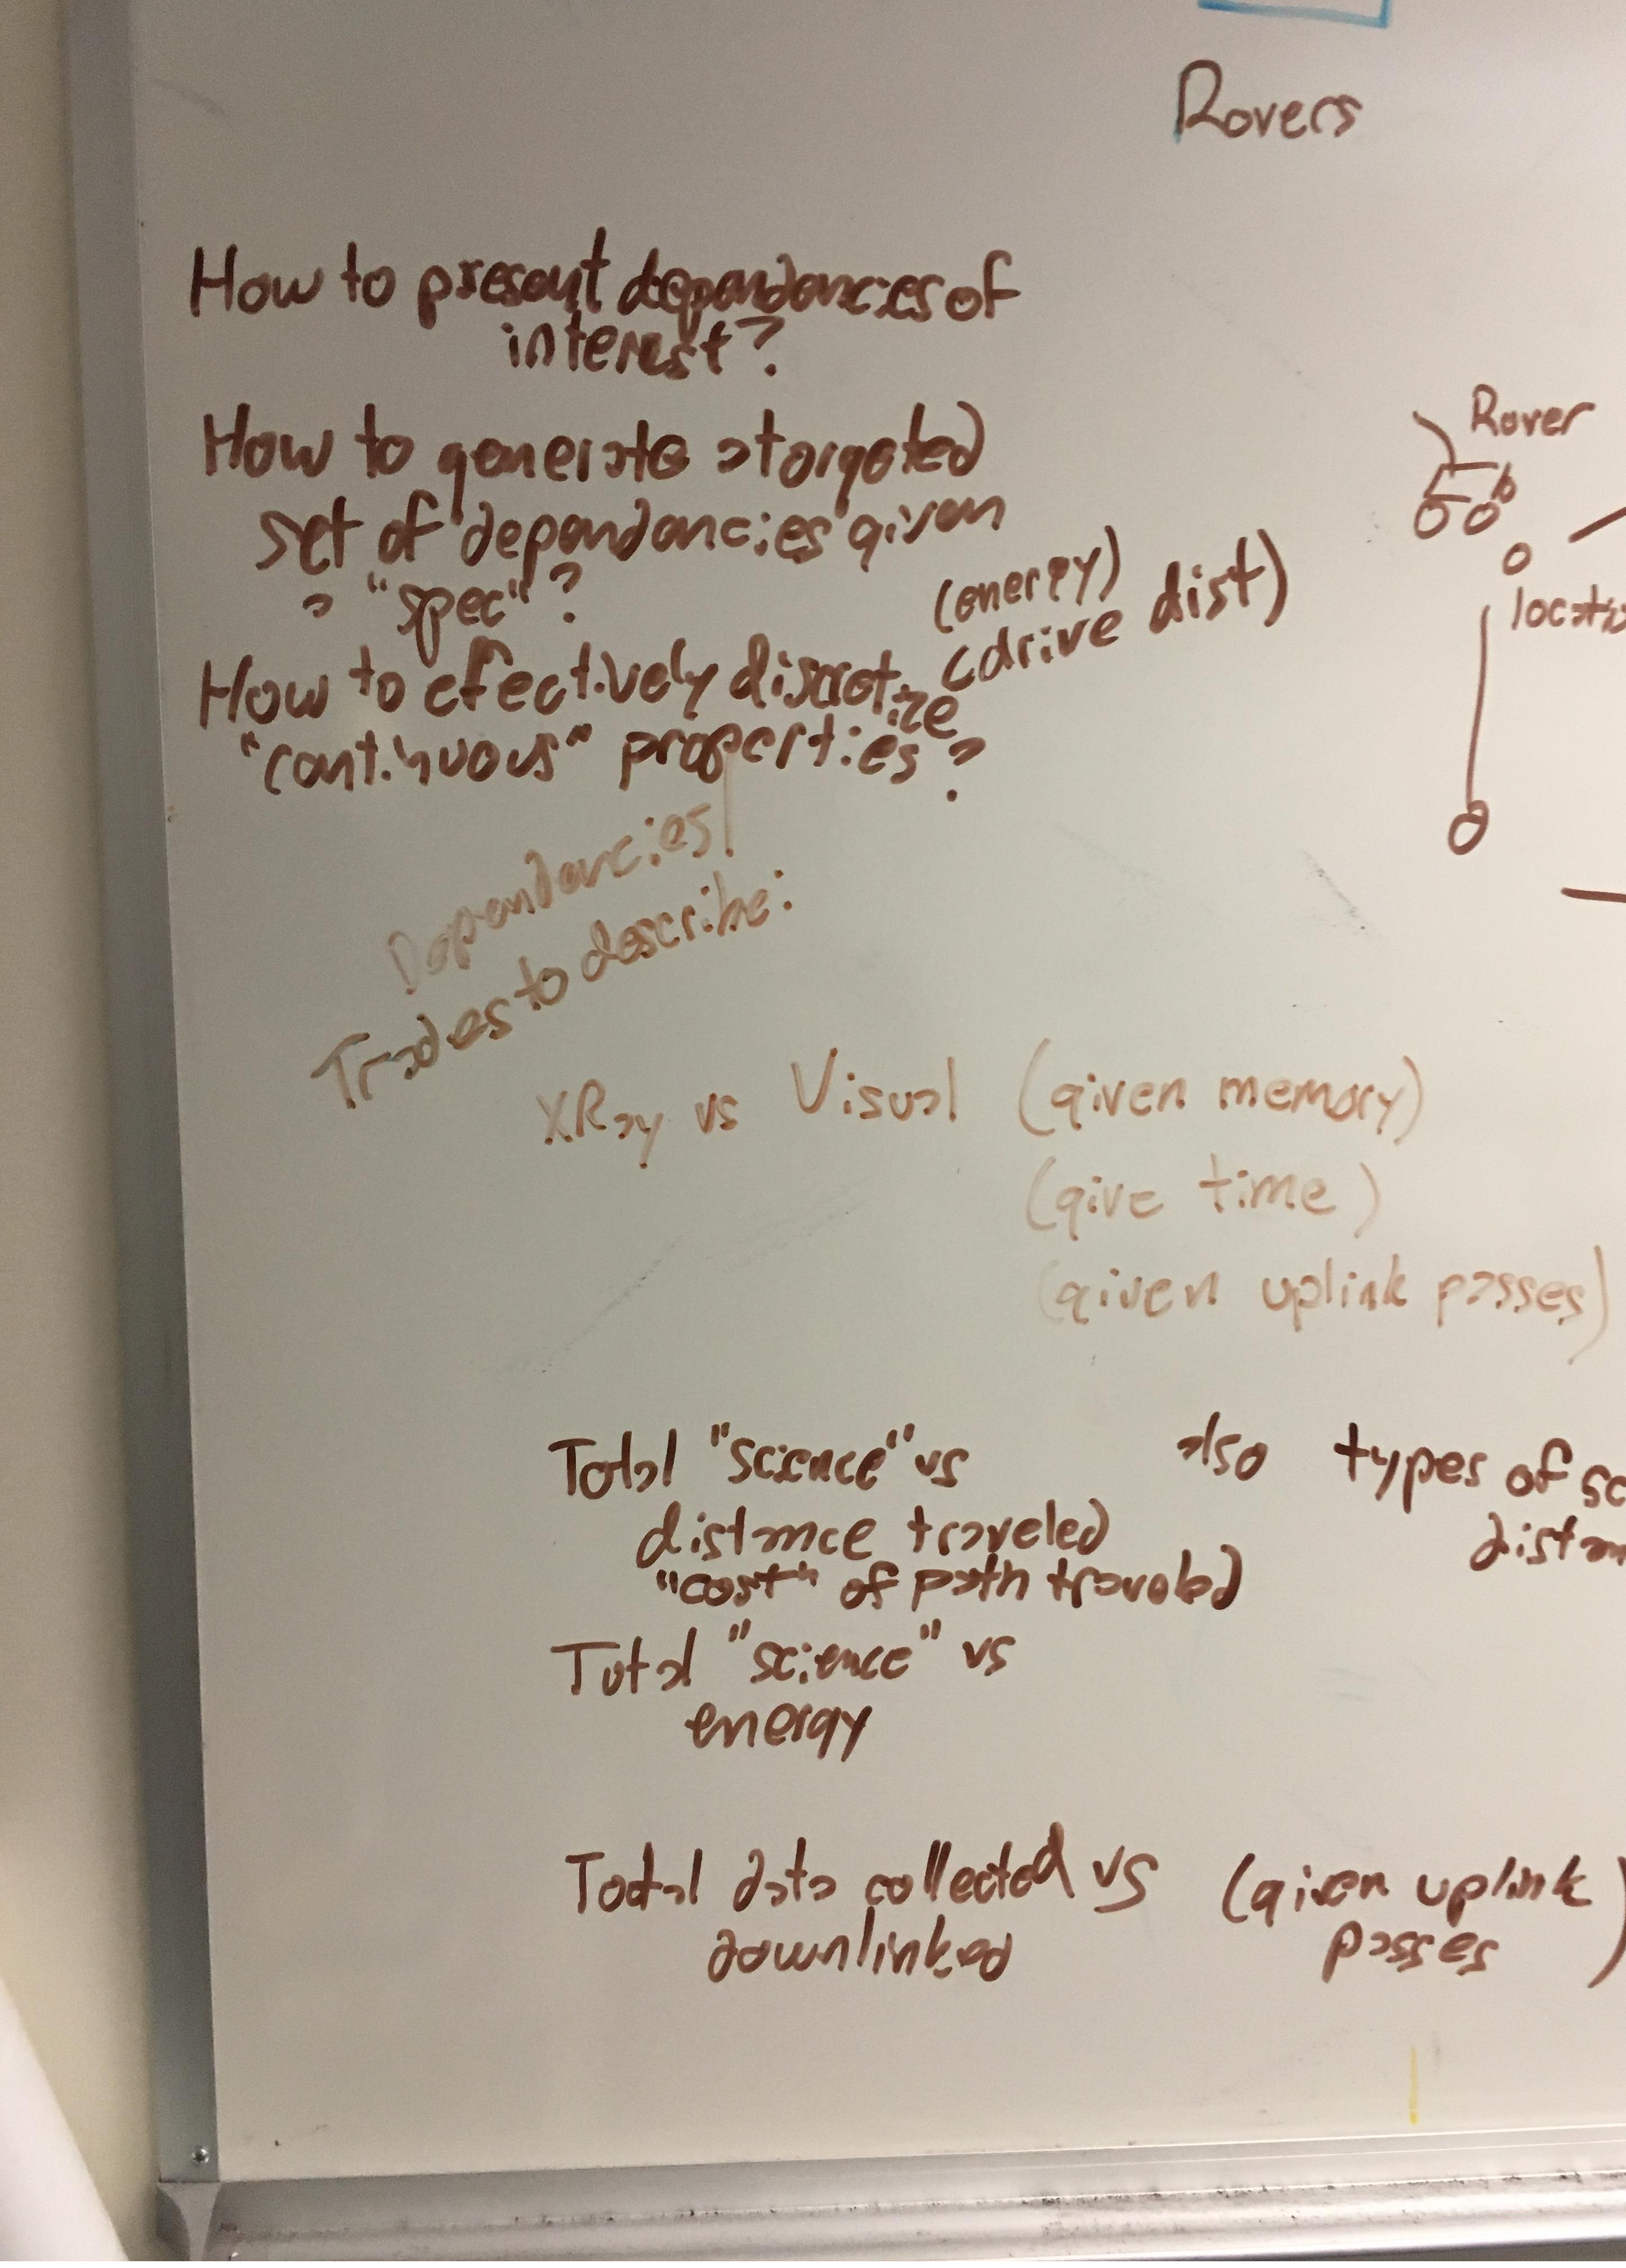 Rovers
How to present dependances of
interest?
How to generate a targeted
set of dependancies given
a "spec"?
(energy)
(drive dist)
How to efectively discretize
"continuous" properties?
Rover
Dependancies/
Trades to describe:
XRay vs Visual (given memory)
(give time)
(given uplink passes)
Total "science" vs
distance traveled
"cost" of path traveled
also types of
Total "science" vs
energy
Total data collected vs
downlinked
(given uplink
passes)